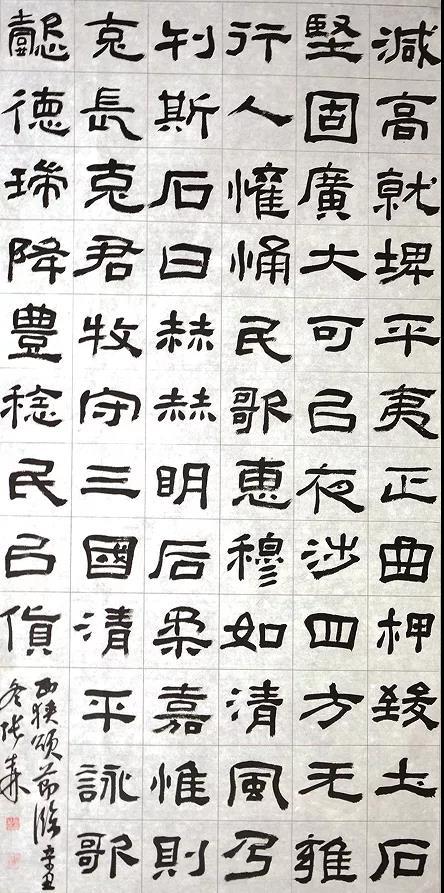 減高就埤平夷正曲柙致土石
堅固廣大可㠯夜涉四方无雍
行人懽悀民歌惠穆如清風乃
刊斯石曰赫赫明后柔嘉惟則
克長克君牧守三國清平詠歌
懿德瑞降豊稔民㠯貨
西狹頌節臨辛丑
冬張森